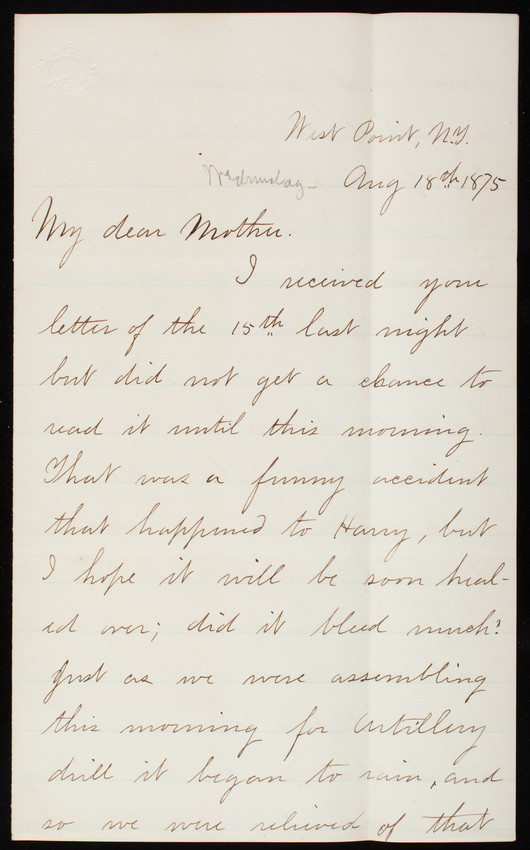 West Point, N.Y.
Wednesday -
Aug 18th 1875
My dear Mother.
I received your
letter of the 15th last night
but did not get a chance to
read it until this morning.
That was a funny accident
that happened to Harry, but
I hope it will be soon heal-
ed over; did it bleed much?
Just as we were assembling
this morning for Artillery
drill it began to rain, and
so we were relieved of that